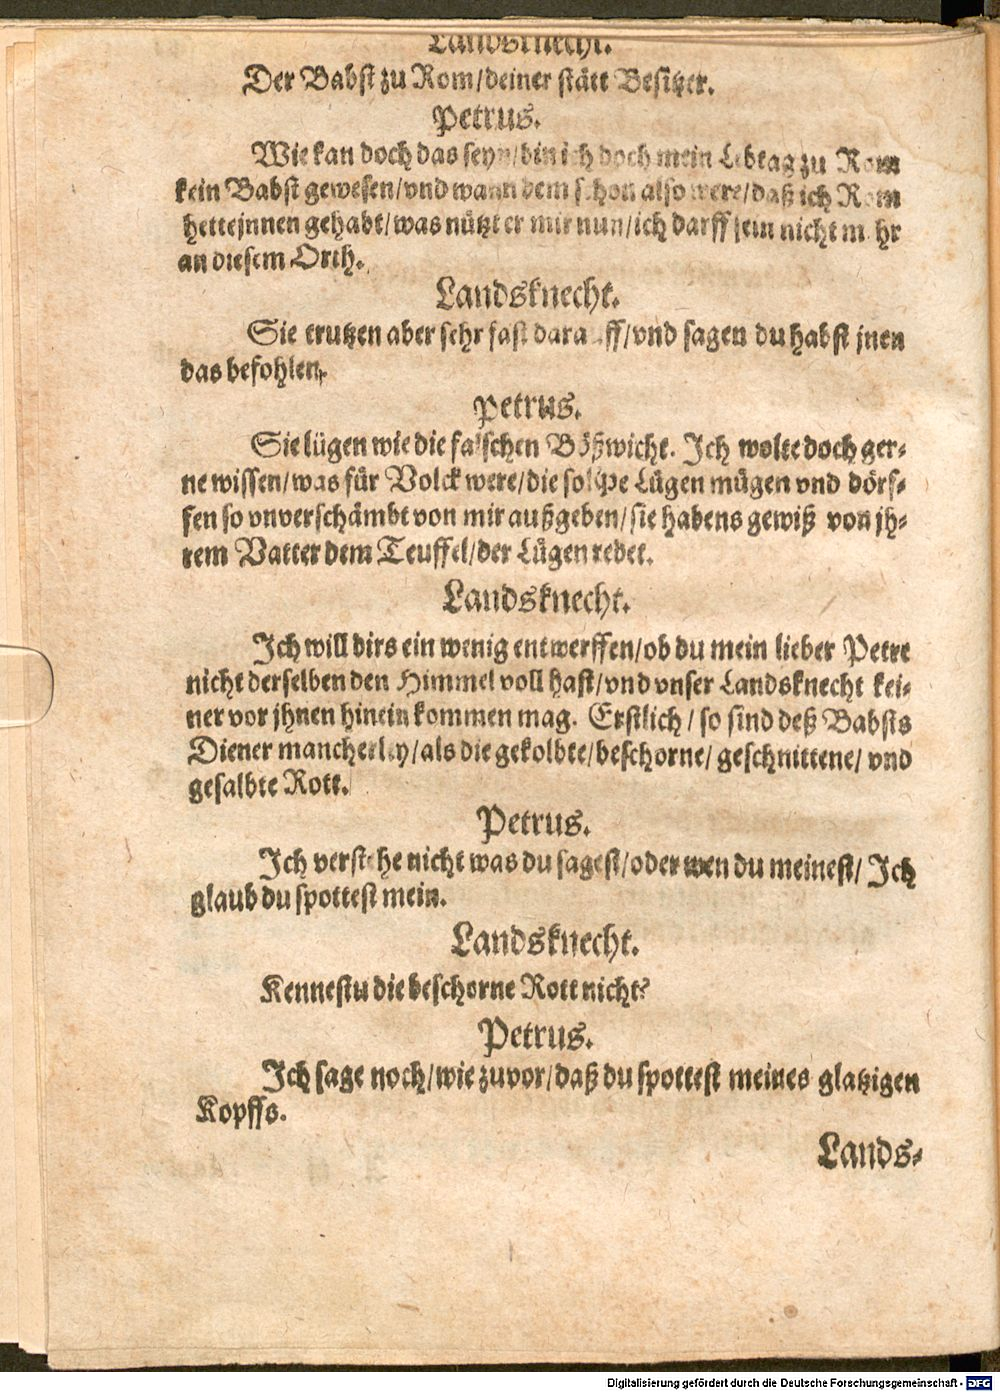 Landsknecht.
Der Babst zu Rom/deiner stätt Besitzer.
Petrus.
Wie kan doch das seyn/bin ich doch mein Lebtag zu Rom
kein Babst gewesen/vnd wann dem schon also were/daß ich Rom
hette jnnen gehabt/was nützt er mir nun/ich darff sein nicht mehr
an diesem Orth.
Landsknecht.
Sie trutzen aber sehr fast darauff/vnd sagen du habst jnen
das befohlen.
Petrus.
Sie lügen wie die falschen Bößwicht. Ich wolte doch ger-
ne wissen/was für Volck were/die solche Lügen mügen vnd dörf-
fen so vnverschämbt von mir außgeben/sie habens gewiß von jh-
rem Vatter dem Teuffel/der Lügen redet.
Landsknecht.
Ich will dirs ein wenig entwerffen/ob du mein lieber Petre
nicht derselben den Himmel voll hast/vnd vnser Landsknecht kei-
ner vor jhnen hinein kommen mag. Erstlich/so sind deß Babsts
Diener mancherley/als die gekolbte/beschorne/geschnittene/vnd
gesalbte Rott.
Petrus.
Ich verstehe nicht was du sagest/oder wen du meinest/Ich
glaub du spottest mein.
Landsknecht.
Kennestu die beschorne Rott nicht?
Petrus.
Ich sage noch/wie zuvor/daß du spottest meines glatzigen
Kopffs.
Lands-
Digitalisierung gefördert durch die Deutsche Forschungsgemeinschaft - DFG